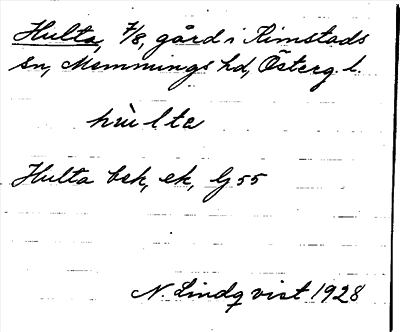 Hulta, 7/8, gård i Kimstads
sn, Memmings hd, Österg. l.
hùlta
Hulta bsk, ek, Gj 55
N. Lindqvist 1928